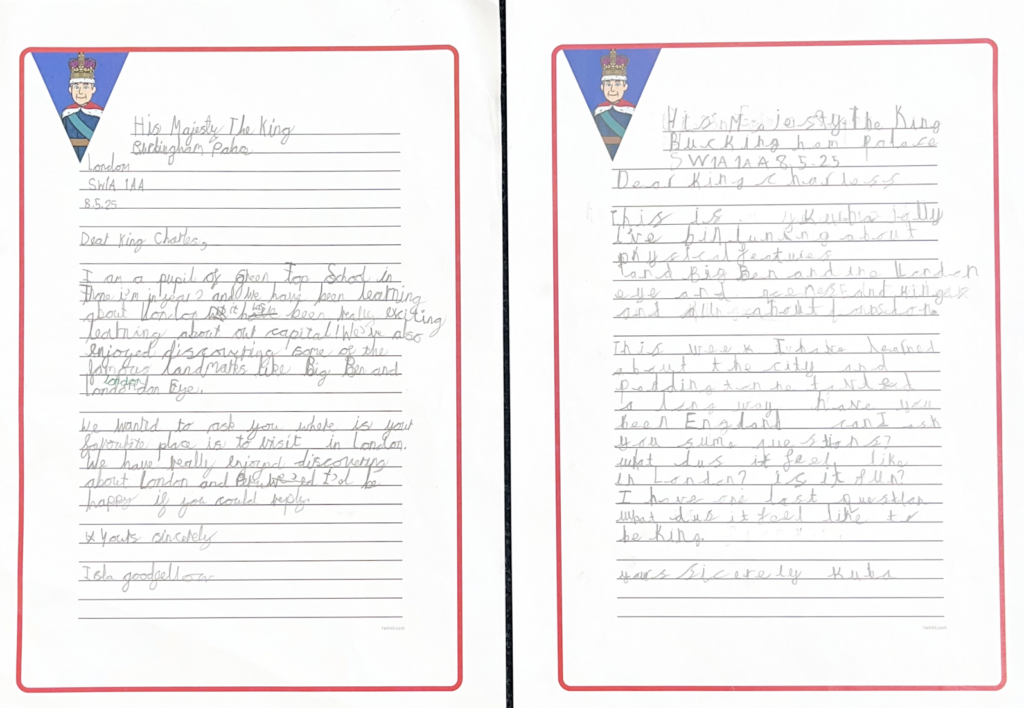 His Majesty The King
London
SW1A 1AA
8.5.25
Dear King Charles,
I am a pupil of Green Top School in
there I'm in year 2 and we have been learning
about London been really exciting
learning about our capital! We've also
enjoyed discovering some of the
famous landmarks like Big Ben and
London
Eye.
We wanted to ask you where is your
favourite place is to visit in London.
We have really enjoyed discovering
about London and be
happy if you could reply.
Yours sincerely
Isla goodfellow
the King
Bucking ham Palace
SW1A 1AA 8.5.25
Dear King Charless
This is
I've bin about
physical features
and Big Ben and the London
eye and
and
This week I have learned
about the city and
a long way have you
been England can I ask
you sume questions?
what dus it feel like
in London? is it fun?
I have one last question
what dus it feel like to
be King.
yours sicerely Kuba